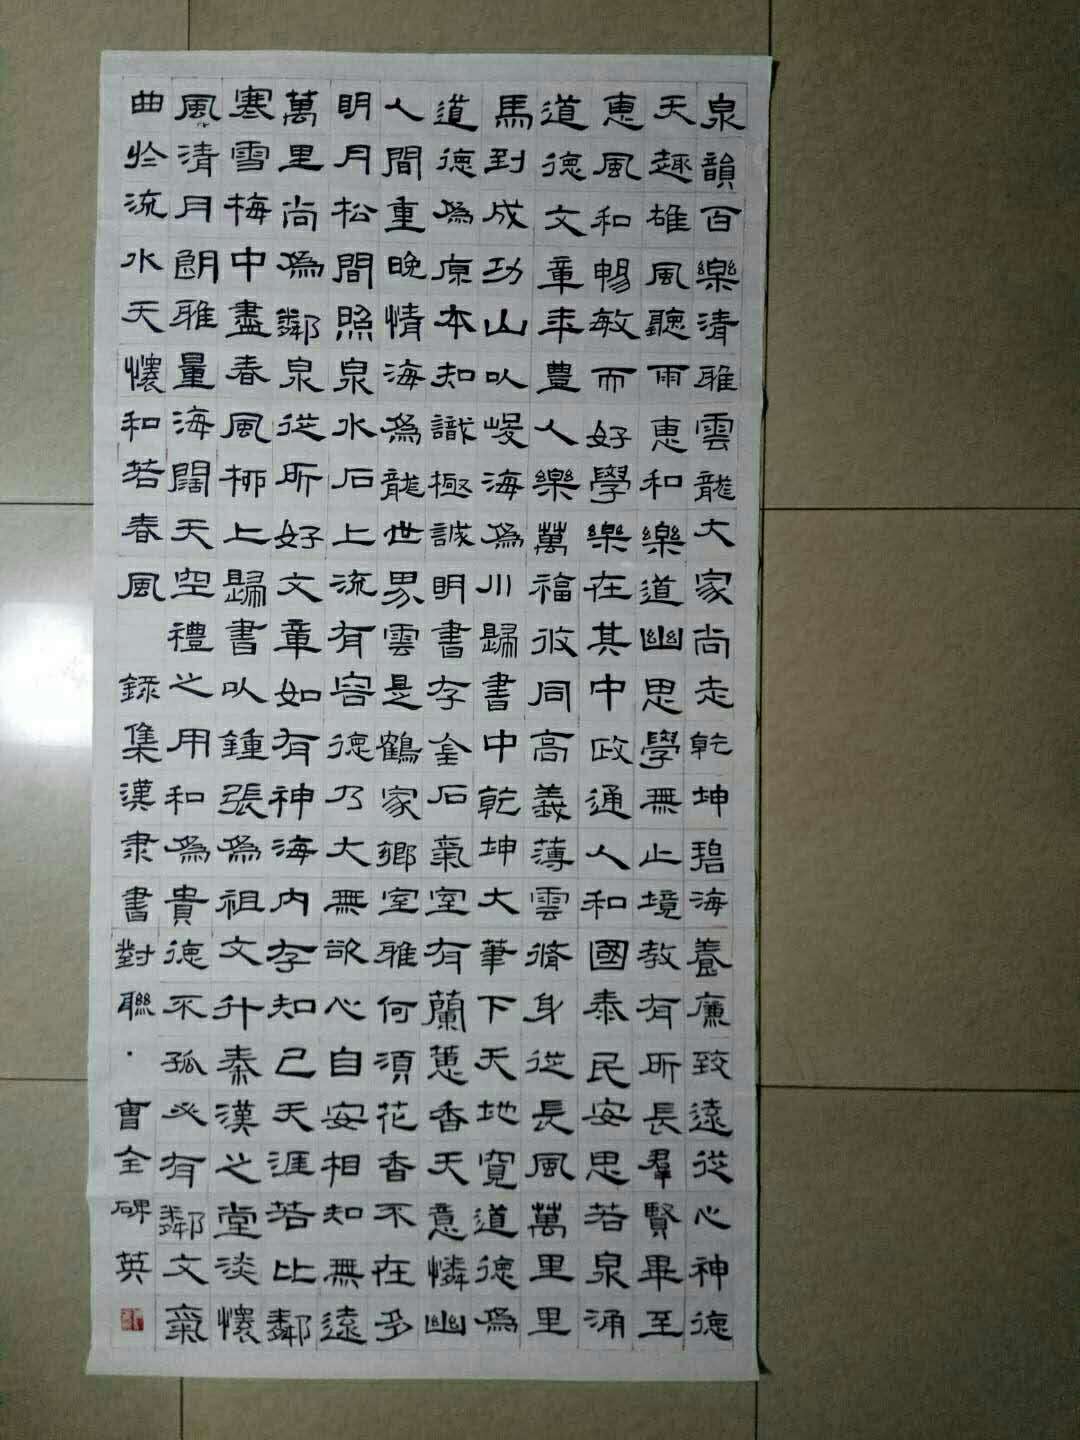 泉韻百樂清雅雲龍大家尚志乾坤碧海養廉致遠從心神德
天趣雄風聽雨惠和樂道幽思學無止境教有所長羣賢畢至
惠風和暢敏而好學樂在其中政通人和國泰民安思若泉涌
道德文章年豊人樂萬福攸同高義薄雲脩身從長風萬里里
馬到成功山以峻海爲川歸書中乾坤大筆下天地寬道德爲
道德爲原本知識極誠明書存金石氣室有蘭蕙香天意憐幽
人間重晚情海爲龍世界雲是鶴家鄉室雅何須花香不在多
明月松間照泉水石上流有容德乃大無欲心自安相知無遠
萬里尚爲鄰泉從所好文章如有神海内存知己天涯若比鄰
寒雪梅中盡春風柳上歸書以鍾張爲祖文升秦漢之堂淡懷
風清月朗雅量海闊天空禮之用和爲貴德不孤必有鄰文氣
曲於流水天懷和若春風 録集漢隸書對聯·曹全碑英